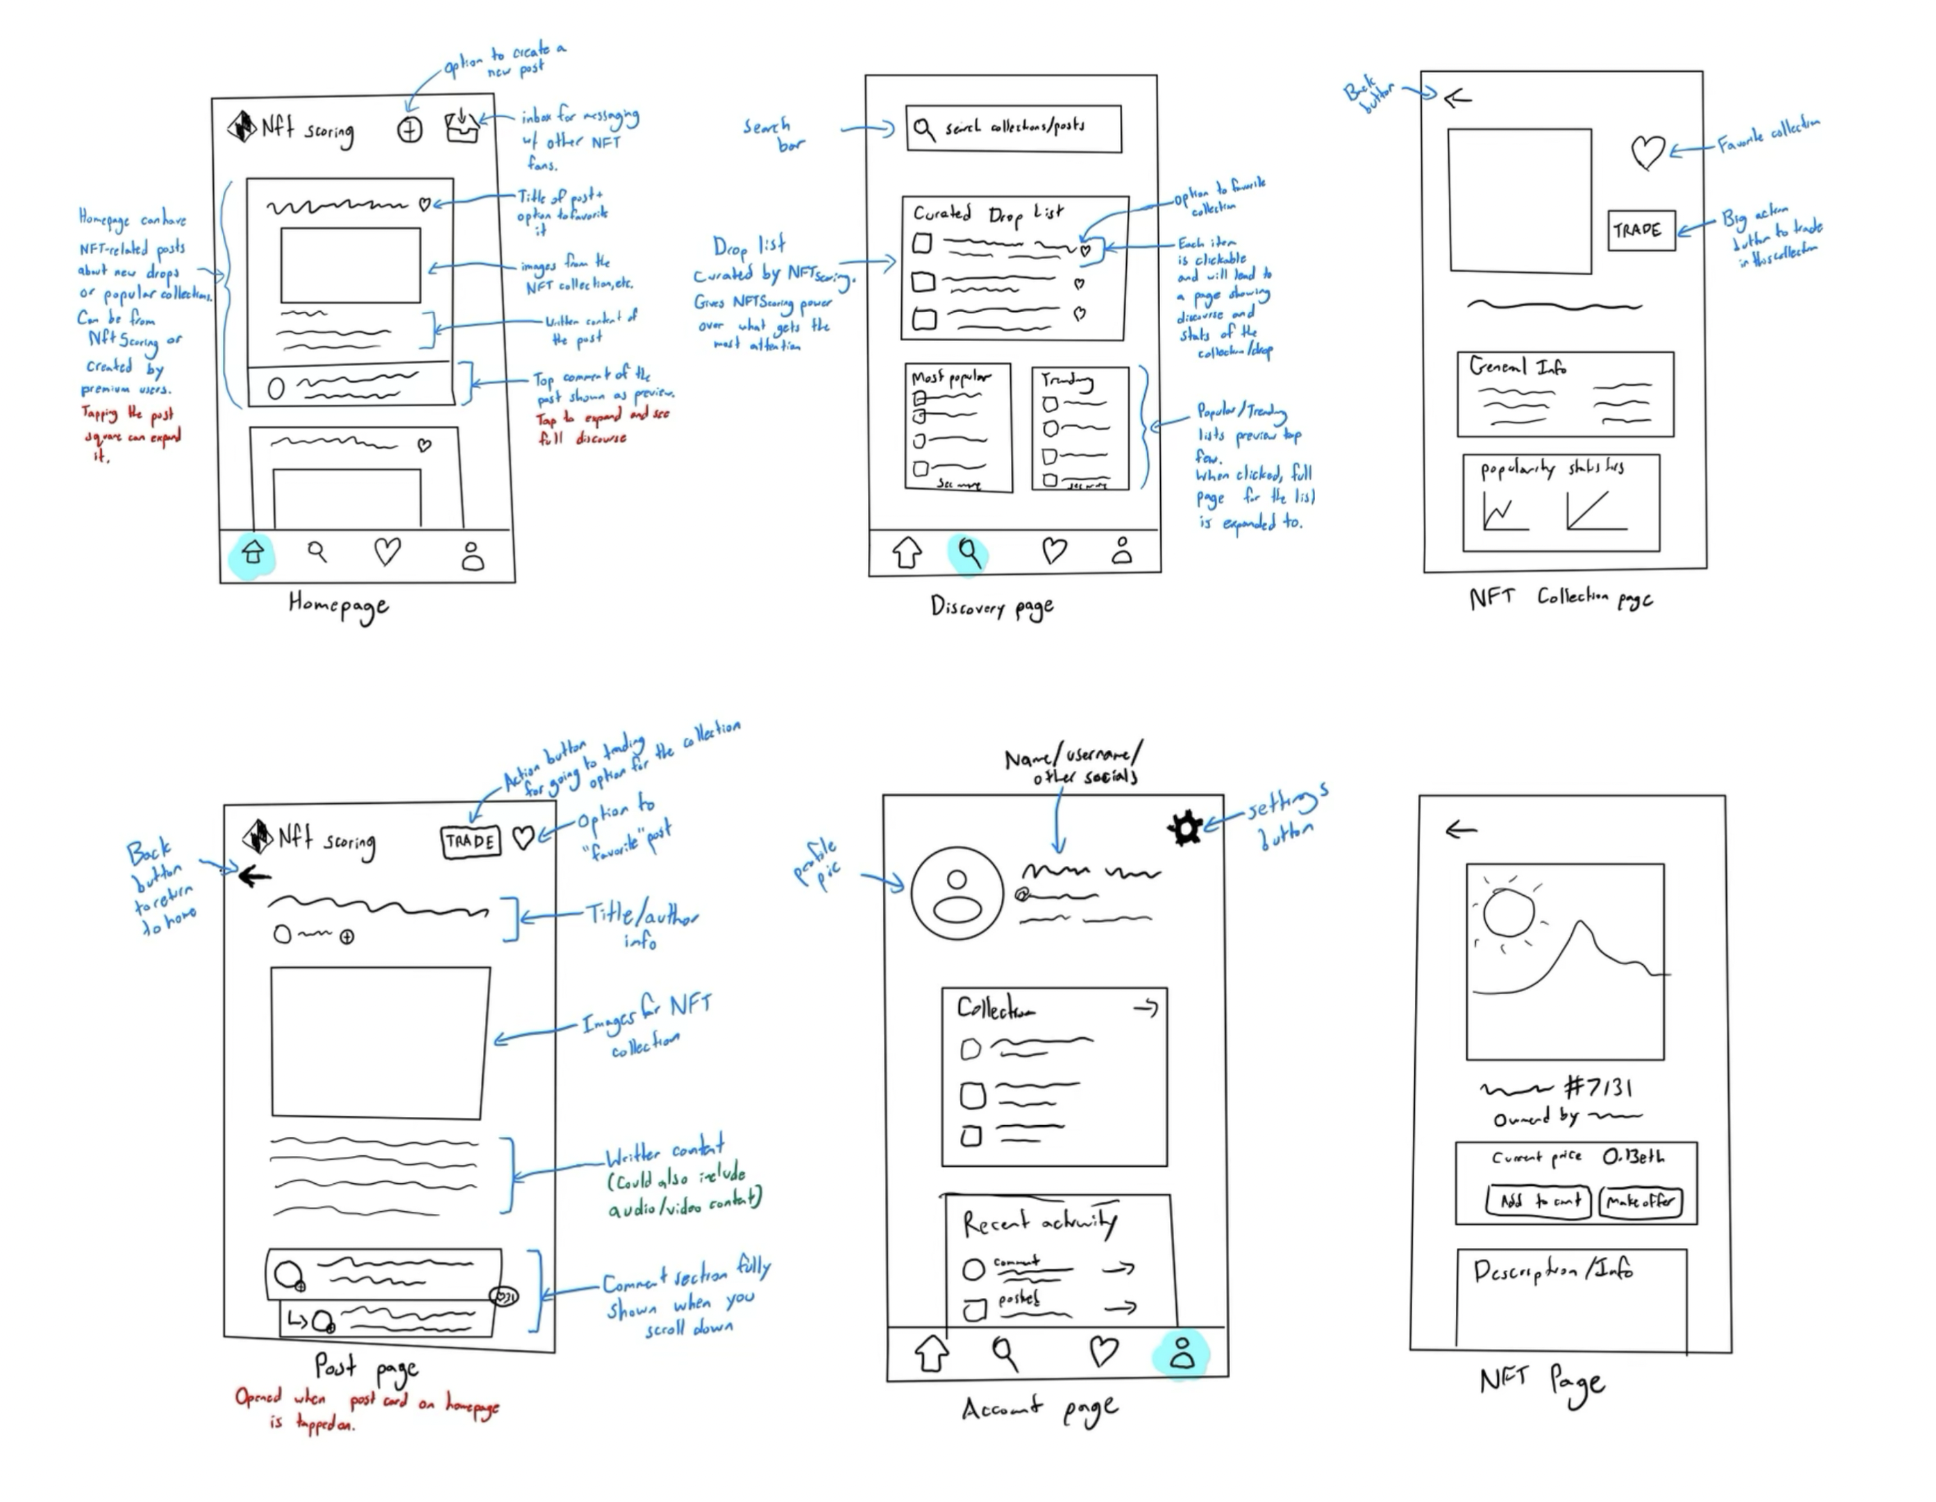 option to create a
new post
Nft scoring
inbox for messaging
w/ other NFT
fans.
Title of post +
option to favorite
it
Homepage can have
NFT-related posts
about new drops
or popular collections.
Can be from
NftScoring or
created by
premium users.
Tapping the post
square can expand
it.
images from the
NFT collection, etc.
Written content of
the post
Top comment of the
post shown as preview.
Tap to expand and see
full discourse
Homepage
search
bar
search collections/posts
Drop list
Curated by NFTScoring.
Gives NFTScoring power
over what gets the
most attention
Curated Drop List
option to favorite
collection
Each item
is clickable
and will lead to
a page showing
discourse and
stats of the
collection/drop
Most popular
see more
Trending
see more
Popular/Trending
lists preview top
few.
When clicked, full
page for the list
is expanded to.
Discovery page
Back
button
Favorite collection
TRADE
Big action
button to trade
in this collection
General Info
popularity statistics
NFT Collection page
Action button
for going to trading
option for the collection
Nft scoring
TRADE
Option to
"favorite" post
Back
button
to return
to home
Title/author
info
Images for NFT
collection
Written content
(Could also include
audio/video content)
Comment section fully
shown when you
scroll down
Post page
Opened when post card on homepage
is tapped on.
Name/username/
other socials
settings
button
profile
pic
@
Collection
Recent activity
comment
posted
Account page
#7131
Owned by
Current price 0.13eth
Add to cart
Make offer
Description/Info
NFT Page